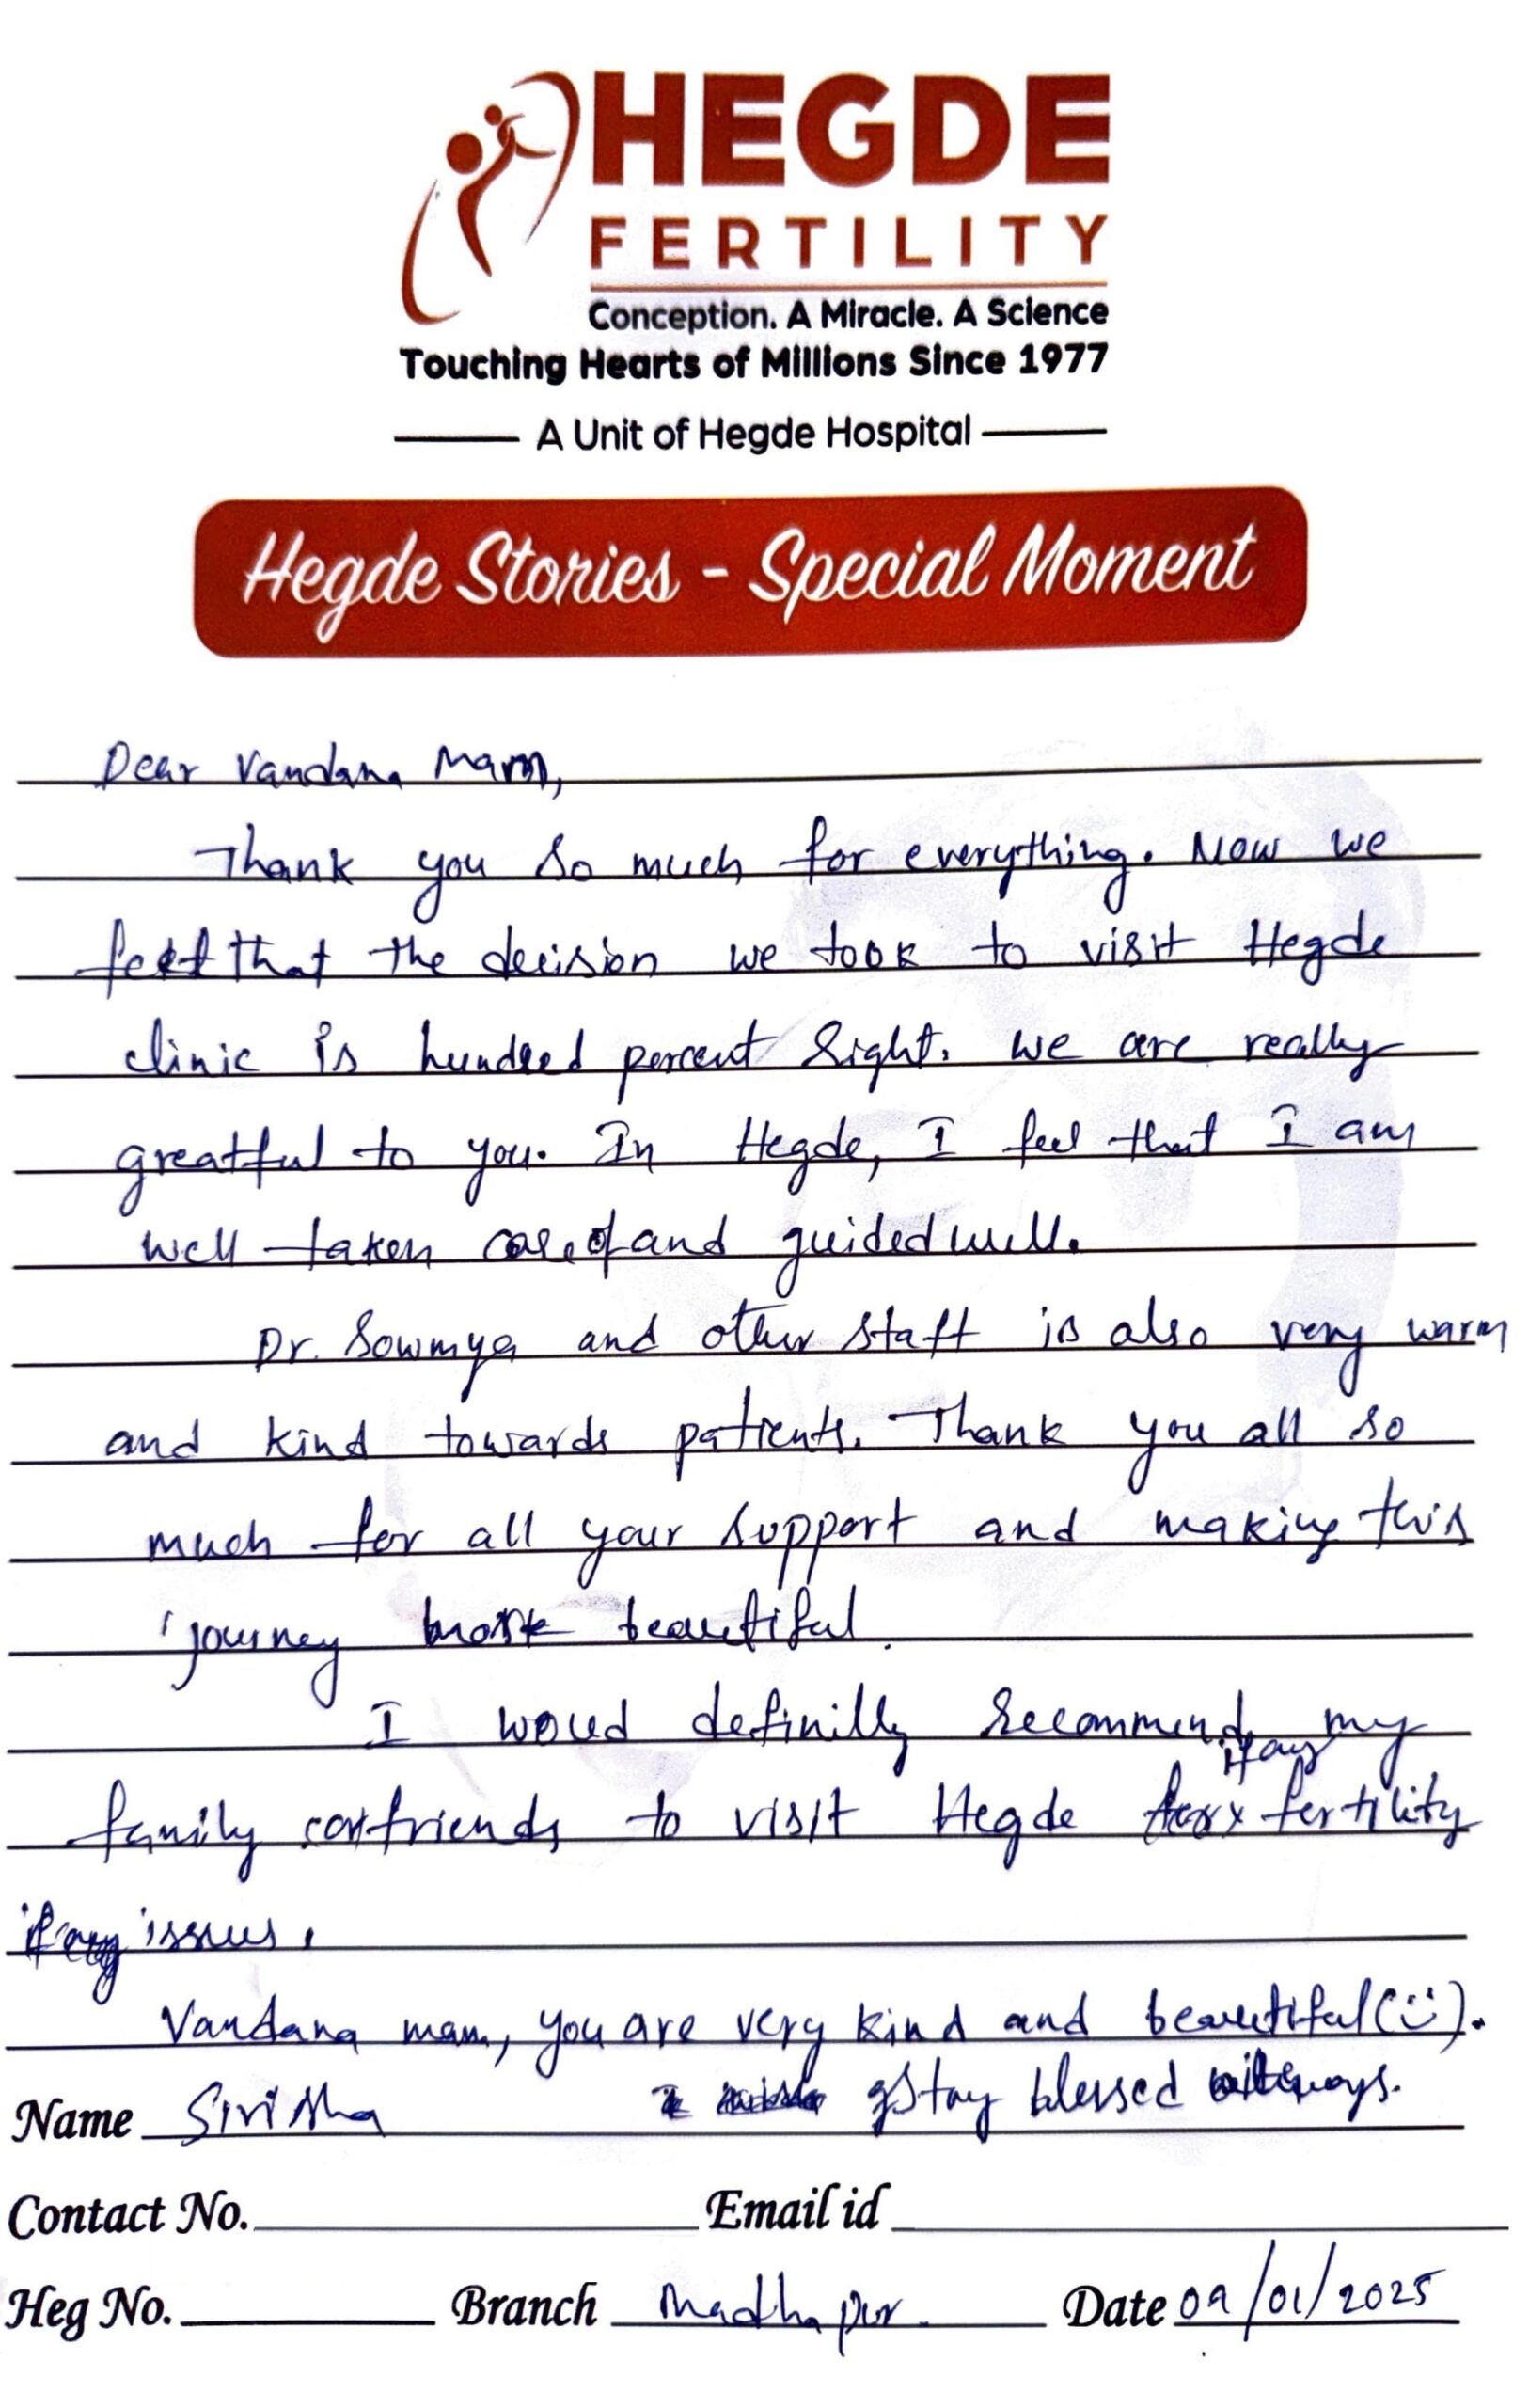 HEGDE
FERTILITY
Conception. A Miracle. A Science
Touching Hearts of Millions Since 1977
A Unit of Hegde Hospital
Hegde Stories - Special Moment
Dear Vandana Mam,
Thank you so much for everything. Now we
feel that the decision we took to visit Hegde
clinic is hundred percent right. we are really
greatful to you. In Hegde, I feel that I am
well taken care of and guided well.
Dr. Sowmya and other staff is also very warm
and kind towards patients. Thank you all so
much for all your support and making this
journey more beautiful.
I would definilly recommend my
if any
family or friends to visit Hegde for fertility
issues.
Vandana mam, you are very kind and beautiful(:).
Name Sirisha Stay blessed always.
Contact No. Email id
Heg No. Branch Madhapur Date 09/01/2025